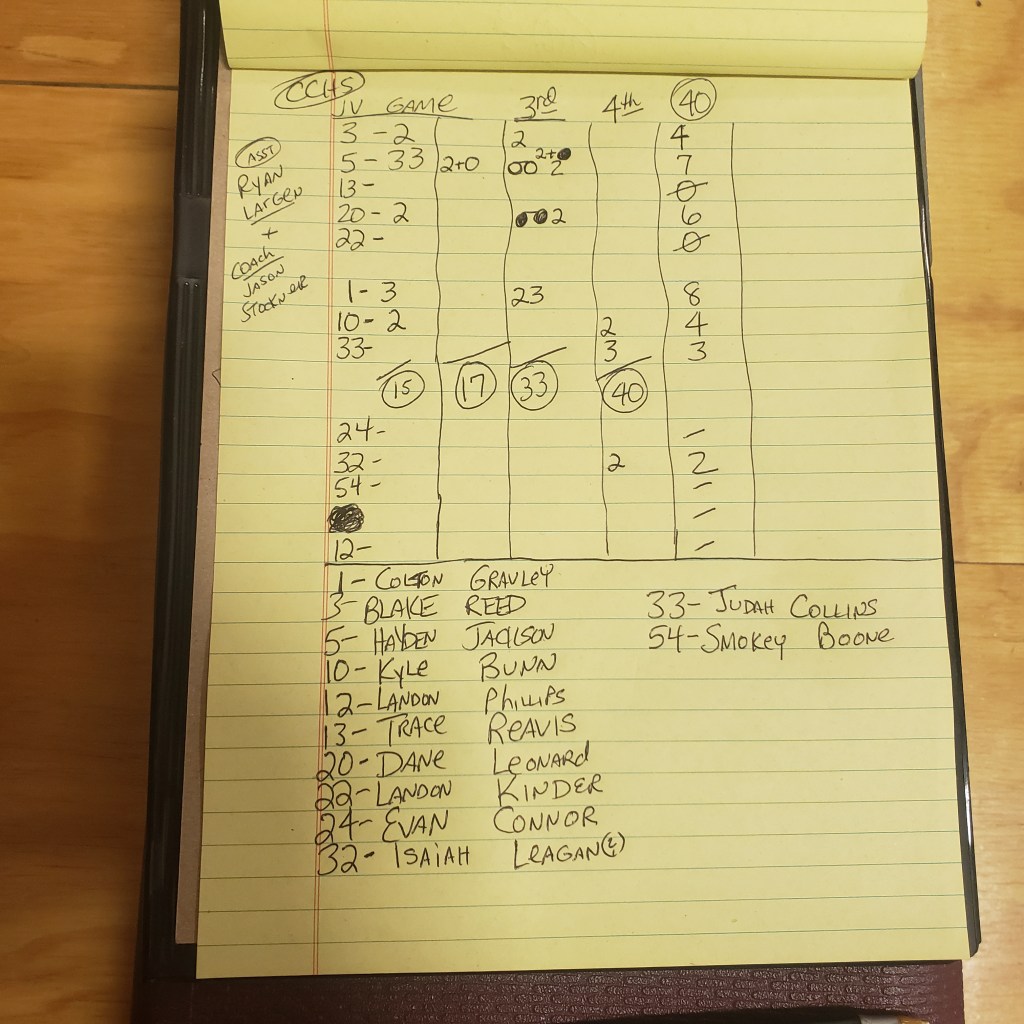 CCHS
JV GAME 3rd 4th 40
3 - 2 2 4
5 - 33 2+0 00 2+● 2 7
13 - 0
20 - 2 ●●2 6
22 - 0
1 - 3 23 8
10 - 2 2 4
33- 3 3
15 17 33 40
24 - –
32 - 2 2
54 - –
–
12 - –
ASST
RYAN
LARGEN
+
COACH
JASON
STOCKNER
1 - COLTON GRAVLEY
3 - BLAKE REED 33 - JUDAH COLLINS
5 - HAYDEN JACKSON 54 - SMOKEY BOONE
10 - KYLE BUNN
12 - LANDON PHILLIPS
13 - TRACE REAVIS
20 - DANE LEONARD
22 - LANDON KINDER
24 - EVAN CONNOR
32 - ISAIAH LEAGAN(?)